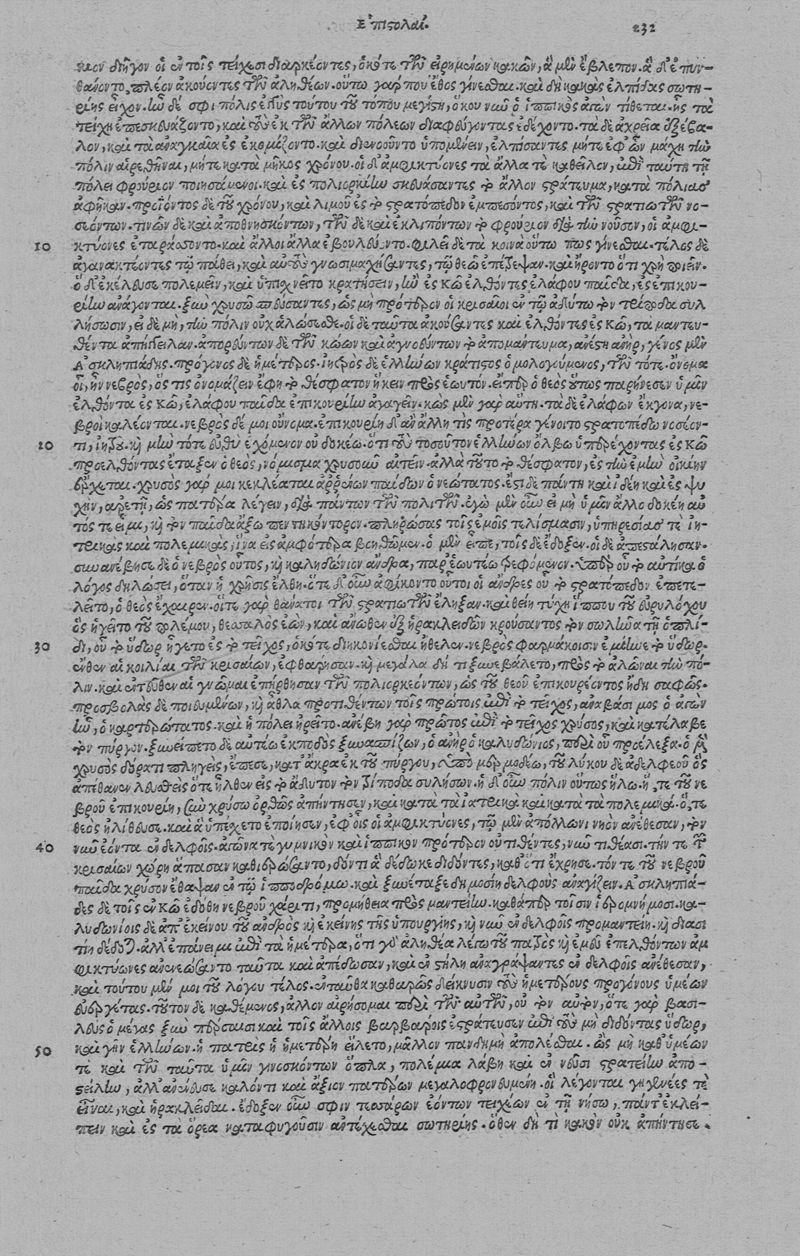 Ἐπιστολαί. 232
νεον διῆγον οἱ ἐν τοῖς τείχεσι διαρκέοντες, ὁκότε τῶν εἰρημένων κακῶν, ἃ μὲν ἔβλεπον. ἃ δ' ἐπυν-
θάνοντο πλέον ἀκούοντες τῶν ἀληθέων. οὕτω γάρ που ἔθος γίνεσθαι. καὶ δὴ κακὰς ἐλπίδας σωτη-
ρίης εἶχον. ἦν δέ σφι πόλις ἐγγὺς τούτου τοῦ τόπου μεγίστη, ὅκου νῦν ὁ ἱππικὸς ἀγὼν τίθεται. ἧς τὰ
τείχη ἐπεσκευάζοντο, καὶ τοὺς ἐκ τῶν ἄλλων πόλεων διαφυγόντας ἐδέχοντο. τὰ δὲ ἀχρεῖα ἐξέβα-
λον, καὶ τὰ ἀναγκαῖα ἐσεκομίζοντο. καὶ διενοοῦντο ὑπομένειν, ἐλπίσαντες μήτε ἐφ' ὧν μάχῃ τὴν
πόλιν αἱρεθῆναι, μήτε κατὰ μῆκος χρόνου. οἱ δ' ἀμφικτύονες τὰ ἄλλα τε καθεῖλον, ἐπὶ ταύτῃ τῇ
πόλει φρούριον ποιησάμενοι. καὶ ἐς πολιορκίην σκευάσαντες τὸ ἄλλον στράτευμα, κατὰ πόλιας
ἀφῆκαν. προϊόντος δὲ τοῦ χρόνου, καὶ λιμοῦ ἐς τὸ στρατόπεδον ἐμπεσόντος, καὶ τῶν στρατιωτῶν νο-
σεόντων. τινῶν δὲ καὶ ἀποθνησκόντων, τῶν δὲ καὶ ἐκλιπόντων τὸ φρούριον διὰ τὴν νοῦσον, οἱ ἀμφι-
10 κτύονες ἐταράσσοντο. καὶ ἄλλοι ἄλλα ἐβουλεύοντο. φιλεῖ δὲ τὰ κοινὰ οὕτω πως γίνεσθαι. τέλος δὲ
ἀγανακτέοντες τῷ πάθει, καὶ αὐτοὺς γνωσιμαχήσαντες, τῷ θεῷ ἐπέτρεψαν. καὶ ἤροντο ὅτι χρὴ ποιεῖν.
ὁ δ' ἐκέλευσε πολεμεῖν, καὶ ὑπισχνεῖτο κρατήσειν, ἢν ἐς Κῶ ἐλθόντες ἐλάφου παῖδα, ἐς ἐπικου-
ρίην ἀνάγονται. ξὺν χρυσῷ σπεύσαντες, ὡς μὴ πρότερον οἱ κρισαῖοι ἐν τῷ ἀδύτῳ τὸν τρίποδα συλ
λήσωσιν, εἰ δὲ μὴ, τὴν πόλιν οὐκ ἁλώσεσθαι. οἱ δὲ ταῦτα ἀκούσαντες καὶ ἐλθόντες ἐς Κῶ, τὰ μαντευ-
θέντα ἀπήγγειλαν. ἀπορεύντων δὲ τῶν κώων καὶ ἀγνοεύντων τὸ ἀπομάντευμα, ἀνέστη ἀνὴρ, γένος μὲν
Ἀσκληπιάδης. πρόγονος δὲ ἡμέτερος. ἰητρὸς δὲ ἑλλήνων κράτιστος ὁμολογούμενος, τῶν τότε. ὄνομα
οἱ, ἦν νεβρὸς, ὅς τις ὀνομάζειν ἔφη τὸ θέσφατον ἥκειν πρὸς ἑωυτόν. εἴπερ ὁ θεὸς οὕτως παρῄνεσεν ὑμῖν
ἐλθόντα ἐς Κῶ, ἐλάφου παῖδα ἐπικουρίην ἀγαγεῖν. κὼς μὲν γὰρ αὕτη. τὰ δὲ ἐλάφων ἔκγονα, νε-
βροὶ καλέονται. νεβρὸς δέ μοι οὔνομα. ἐπικουρίη δ' ἂν ἄλλη τίς προτέρα γένοιτο στρατοπέδῳ νοσέον-
20 τι, ἰητροῦ. καὶ μὴν τό τε εὐθὺ ἐχόμενον οὐ δοκέω. ὅτι τοὺς τοσοῦτον ἑλλήνων ὄλβῳ ὑπερέχοντας ἐς Κῶ
προσελθόντας ἔταξεν ὁ θεὸς, νόμισμα χρυσοῦν αἰτεῖν. ἀλλὰ τοῦτο τὸ θέσφατον, ἐς τὴν ἐμὴν οἰκίην
ἔρχεται. χρυσὸς γάρ μοι κεκλέαται ἀρρένων παίδων ὁ νεώτατος. ἔστι δὲ πάντῃ καὶ ἰδέῃ καὶ ἐς ψυ
χὴν, ἀρετῇ, ὡς πατέρα λέγειν, διὰ πάντων τῶν πολιτῶν. ἐγὼ μὲν οὖν εἰ μὴ ὑμῖν ἄλλο δοκέῃ αὐ
τός τε εἶμι, καὶ τὸν παῖδα ἄξω πεντηκόντορον πληρώσας τοῖς ἐμοῖς τελέσμασιν, ὑπηρεσίας τε ἰη-
τρικῆς καὶ πολεμικῆς, ἵνα εἰς ἀμφότερα βοηθῶμεν. ὁ μὲν εἶπε, τοῖς δὲ ἔδοξεν. οἱ δὲ ἀπεστάλησαν.
συνανέβησε δὲ ὁ νεβρὸς οὗτος, καὶ καληδώνιον ἄνδρα, παρ' ἑωυτῷ τρεφόμενον. ὑπὲρ οὗ τὸ αὐτίκα ὁ
λόγος δηλώσει, ὅταν ἡ χρῆσις ἔλθῃ. ὅτε δ' οὖν ἀφίκοντο οὗτοι οἱ ἄνδρες οὗ τὸ στρατόπεδον ἐπετε-
λεῖτο, ὁ θεὸς ἔχαιρεν. οἵ τε γὰρ θάνατοι τῶν στρατιωτῶν ἔληξαν. καὶ θείῃ τύχῃ ἵππου τοῦ εὐρυλόχου
ὃς ἡγεῖτο τοῦ πολέμου, θεσσαλὸς ἐὼν, καὶ ἄνωθεν ἐξ ἡρακλειδῶν κρούσαντος τὸν σωλῆνα τῇ ὁπλῇ
30 δι' οὗ ὕδωρ ἤγετο ἐς τὸ τεῖχος, ὁκότε δὴ κονίεσθαι ἤθελεν. νεβρὸς φαρμάκοισιν ἐμίηνε τὸ ὕδωρ.
ὅθεν αἱ κοιλίαι τῶν κρισαίων, ἐφθάρησαν. καὶ μεγάλα δή τι ξυνεβάλετο, πρὸς τὸ ἁλῶναι τὴν πό-
λιν. καὶ ἐντεῦθεν αἱ γνῶμαι ἐπήρθησαν τῶν πολιορκεόντων, ὡς τοῦ θεοῦ ἐπικουρέοντος ἤδη σαφῶς.
προσβολὰς δὲ ποιευμένων, καὶ ἆθλα προτιθέντων τοῖς πρώτοις ἐπὶ τὸ τεῖχος, ἀναβάσιμος ὁ ἀγὼν
ἦν, ὁ καρτερώτατος. καὶ ἡ πόλις ᾑρεῖτο. ἀνέβη γὰρ πρῶτος ἐπὶ τὸ τεῖχος χρυσὸς, καὶ κατέλαβε
τὸν πύργον. ξυνείπετο δὲ αὐτέῳ ἐκ ποδὸς ξυνασπίζων, ὁ ἀνὴρ ὁ καλυδώνιος, περὶ οὗ προέλεξα. ὁ μὲν
χρυσὸς δόρατι πληγεὶς, ἔπεσε, κατ' ἄκρα ἐκ τοῦ πύργου, ὑπὸ μερμοδέω, τοῦ λύκου ἀδελφεοῦ ὃς
ἀπέθανεν λευσθεὶς ὅτε ἦλθεν εἰς τὸ ἄδυτον τὸν τρίποδα συλήσων. ἡ δ' οὖν πόλιν οὕτως ἥλω. ἥ τε τοῦ νε
βροῦ ἐπικουρίη, ξὺν χρυσῷ ὀρθῶς ἀπήντησεν, καὶ κατὰ τὰ ἰατρικὰ καὶ κατὰ τὰ πολεμικά. ὅ τε
θεὸς ἠλήθευσε. καὶ ἃ ὑπέσχετο ἐποίησεν, ἐφ' οἷς οἱ ἀμφικτύονες, τῷ μὲν ἀπόλλωνι νηὸν ἀνέθεσαν, τὸν
40 νῦν ἐόντα ἐν δελφοῖς. ἀγῶνά τε γυμνικὸν καὶ ἱππικὸν πρότερον οὐ τιθέντες, νῦν τιθέασι. τήν τε τῶν
κρισαίων χώρην ἅπασαν καθιδρώσαντο, δόντι ἃ δέδωκε διδόντες, καθ' ὅτι ἔχρησε. τόν τε τοῦ νεβροῦ
παῖδα χρύσον ἔθαψαν ἐν τῷ ἱπποδρόμῳ. καὶ ξυνέταξε δημοσίῃ δελφοὺς ἐναγίζειν. Ἀσκληπιά-
δες δὲ τοῖς ἐν Κῷ ἐδόθη νεβροῦ χάριτι, προμηθεία πρὸς μαντείην. καθάπερ τοῖσιν ἱερομνήμοσι. κα-
λυδωνίοις δὲ ἀπ' ἐκείνου τοῦ ἀνδρὸς καὶ ἐκείνης τῆς ὑπουργίης, καὶ νῦν ἐν δελφοῖς προμαντείη. καὶ ἀεισι
τίη δέδοται. ἀλλ' ἐπάνειμι ἐπὶ τὰ ἡμέτερα, ὅτι γὰρ ἀληθέα λέγω τοῦ παιδὸς καὶ ἐμοῦ ἐπελθόντων ἀμ
φικτύωνες ἀνενεώσαντο ταῦτα καὶ ἀπέδωσαν, καὶ ἐν στήλῃ ἀναγράψαντες ἐν δελφοῖς ἀνέθεσαν,
καὶ τούτου μὲν μοι τοῦ λόγου τέλος. ἐνταῦθα καθαρῶς δείκνυσιν τοὺς ἡμετέρους προγόνους ὑμέων
εὐεργέτας. τοῦτον δὲ καθέμενος, ἄλλον αἱρήσομαι περὶ τῶν αὐτῶν, οὐ τὸν αὐτὸν, ὅτε γὰρ βασι-
λεὺς ὁ μέγας ξὺν πέρσαισι καὶ τοῖς ἄλλοις βαρβάροις ἐστράτευσεν ἐπὶ τοὺς μὴ διδόντας ὕδωρ,
50 καὶ γῆν ἑλλήνων. ἡ πατρὶς ἡ ἡμετέρη εἵλετο, μᾶλλον πανδημῇ ἀπολέσθαι. ὡς μὴ καθ' ὑμέων
τε καὶ τῶν ταῦτα ὑμῖν γινωσκόντων ὅπλα, πολέμια λάβῃ καὶ ἐν νηυσὶ στρατείην ἀπο-
στείλῃ, ἀλλ' ἀνένευσε καλόν τι καὶ ἄξιον πατέρων μεγαλοφρονευμένη. οἳ λέγονται γηγενέες τε
εἶναι, καὶ ἡρακλεῖδαι. ἔδοξεν οὖν σφιν τεσσάρων ἐόντων τειχέων ἐν τῇ νήσῳ, πάντ' ἐκλεί-
πειν καὶ ἐς τὰ ὄρεα καταφυγοῦσιν ἀντέχεσθαι σωτηρίης. ὅθεν δή τι κακὸν οὐκ ἀπήντησε.